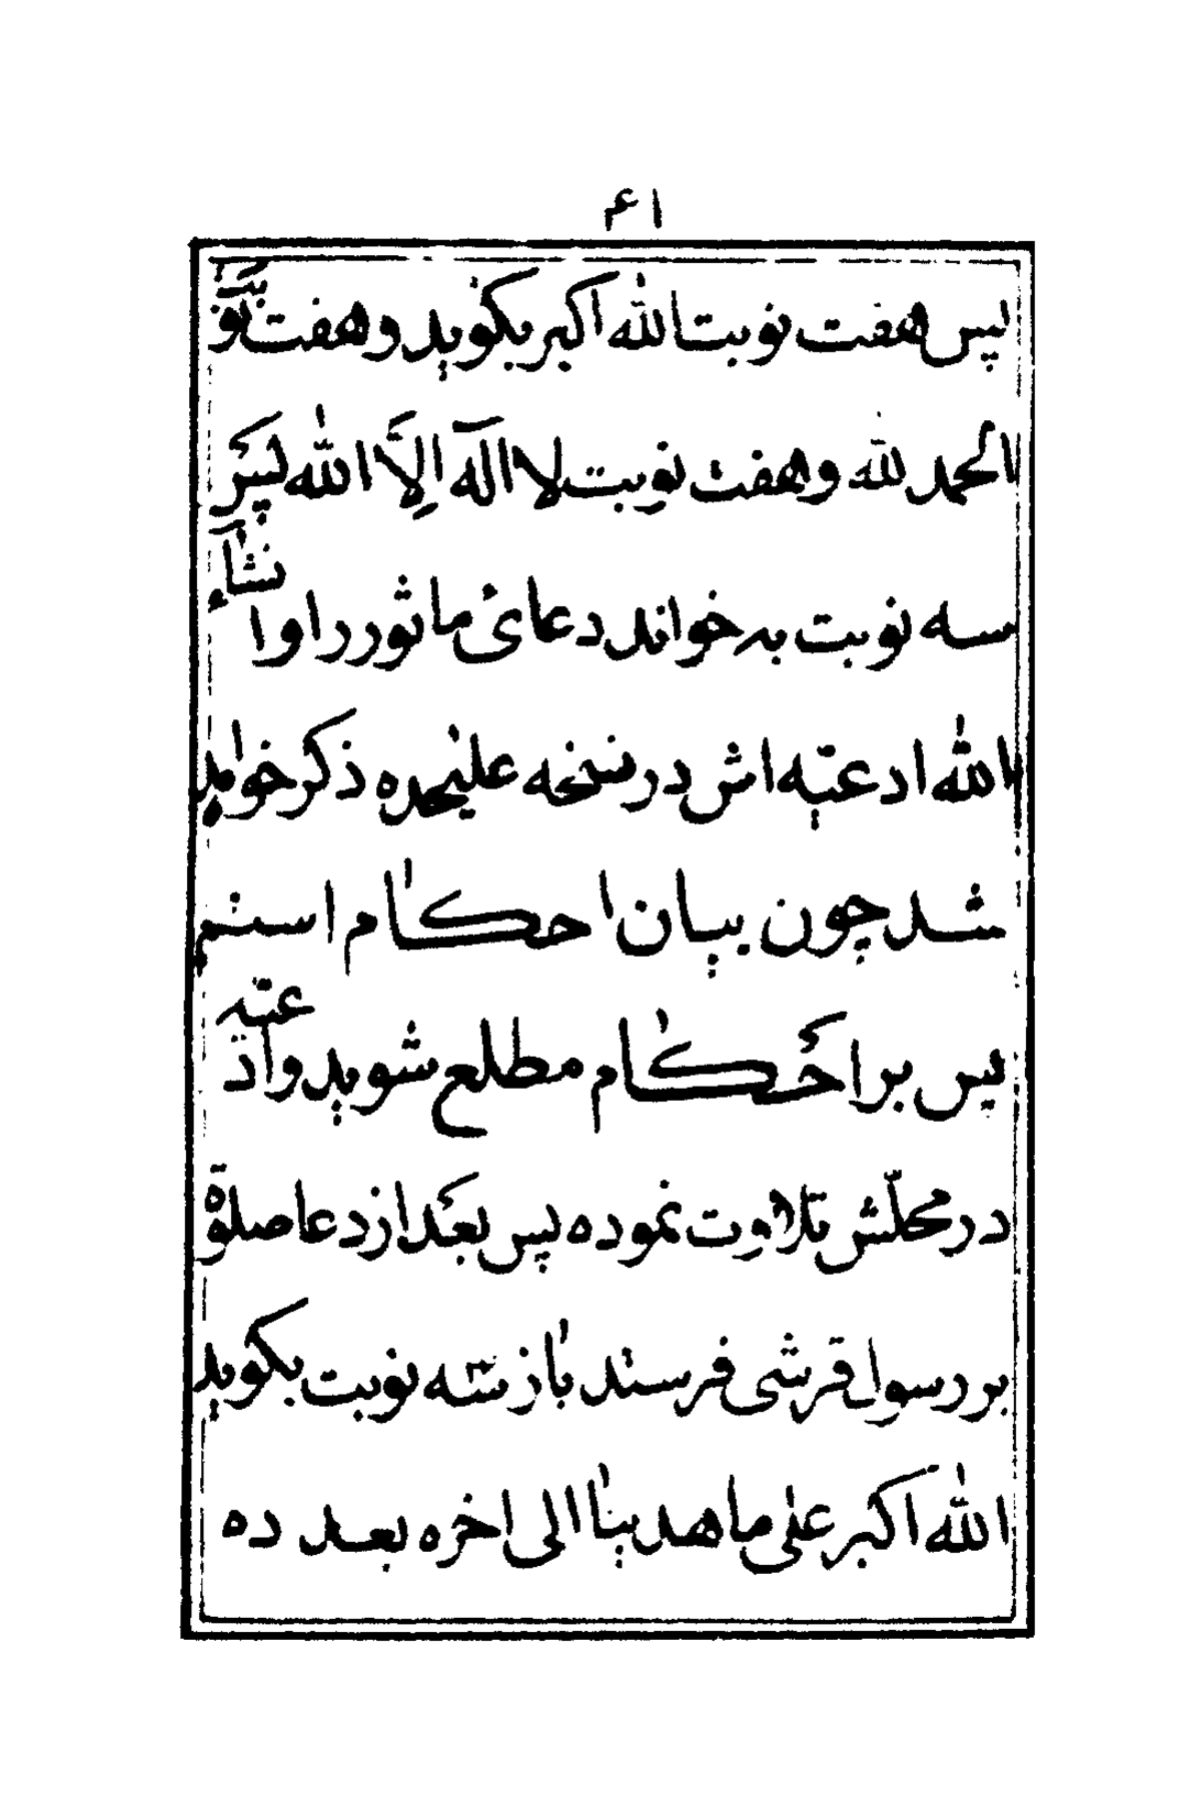 ۱۴
پس هفت نوبت الله اکبر بکوید و هفت نوبت
الحمد لله و هفت نوبت لا اله الا الله پس
سه نوبت به خواند دعائ ماثور را و انشاء
الله ادعیه اش در نسخه علیحده ذکر خواهد
شد چون بیان احکام استم
پس بر احکام مطلع شوید و ادعیه
در محلّش تلاوت نموده پس بعد از دعا صلوة
بر رسول قرشی فرستد باز سه نوبت بکوید
الله اکبر علی ما هدینا الی اخره بعد ده